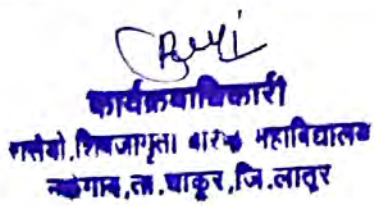 कार्यक्रमाधिकारी
रासेयो, शिवजागृती वरिष्ठ महाविद्यालय
नळेगाव, ता. चाकूर, जि. लातूर